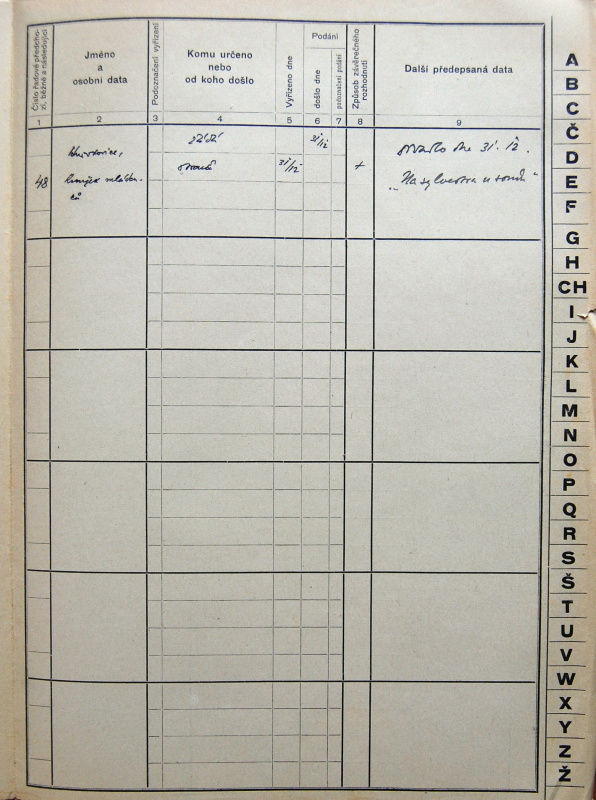 Číslo řadové předcho-
zí, běžné a následující
Jméno
a
osobní data
Podoznačení vyřízení
Komu určeno
nebo
od koho došlo
Vyřízeno dne
Podání
došlo dne
podoznačení podání
Způsob závěrečného
rozhodnutí
Další předepsaná data
1 2 3 4 5 6 7 8 9
žádá 31/12 dne 31. 12.
31/12 +
48 kroužek mláden- „Na sylvestra u
ců
A
B
C
Č
D
E
F
G
H
CH
I
J
K
L
M
N
O
P
Q
R
S
Š
T
U
V
W
X
Y
Z
Ž